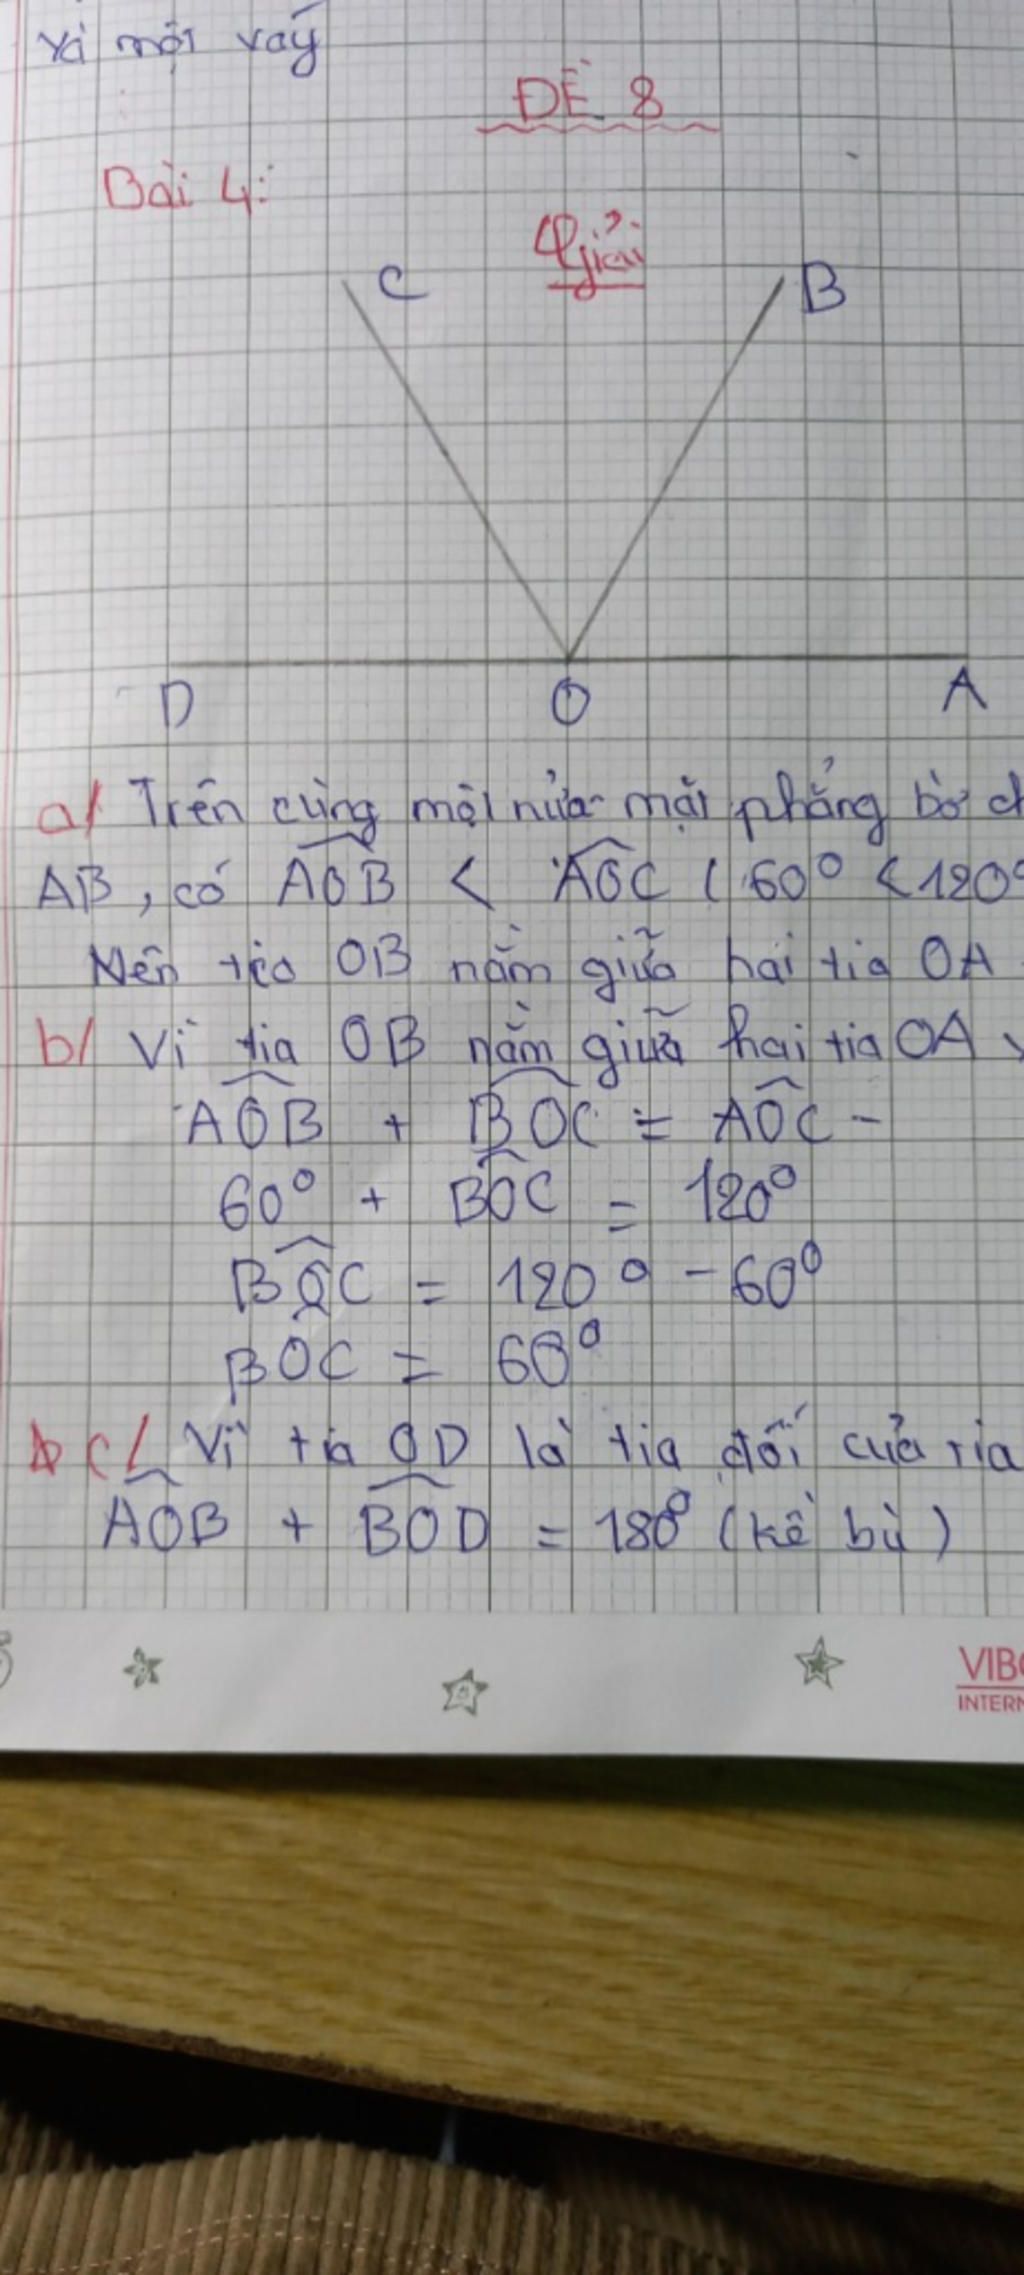 Và một vay
ĐỀ 8
Bài 4:
Giải
C
B
D
O
A
a/ Trên cùng một nửa mặt phẳng bờ ch
AB, có AOB < AOC ( 60° < 120°
Nên tia OB nằm giữa hai tia OA
b/ Vì tia OB nằm giữa hai tia OA v
AOB + BOC = AOC -
60° + BOC = 120°
BOC = 120° - 60°
BOC = 60°
c/ Vì tia OD là tia đối của tia
AOB + BOD = 180° (kề bù)
VIBO
INTERN